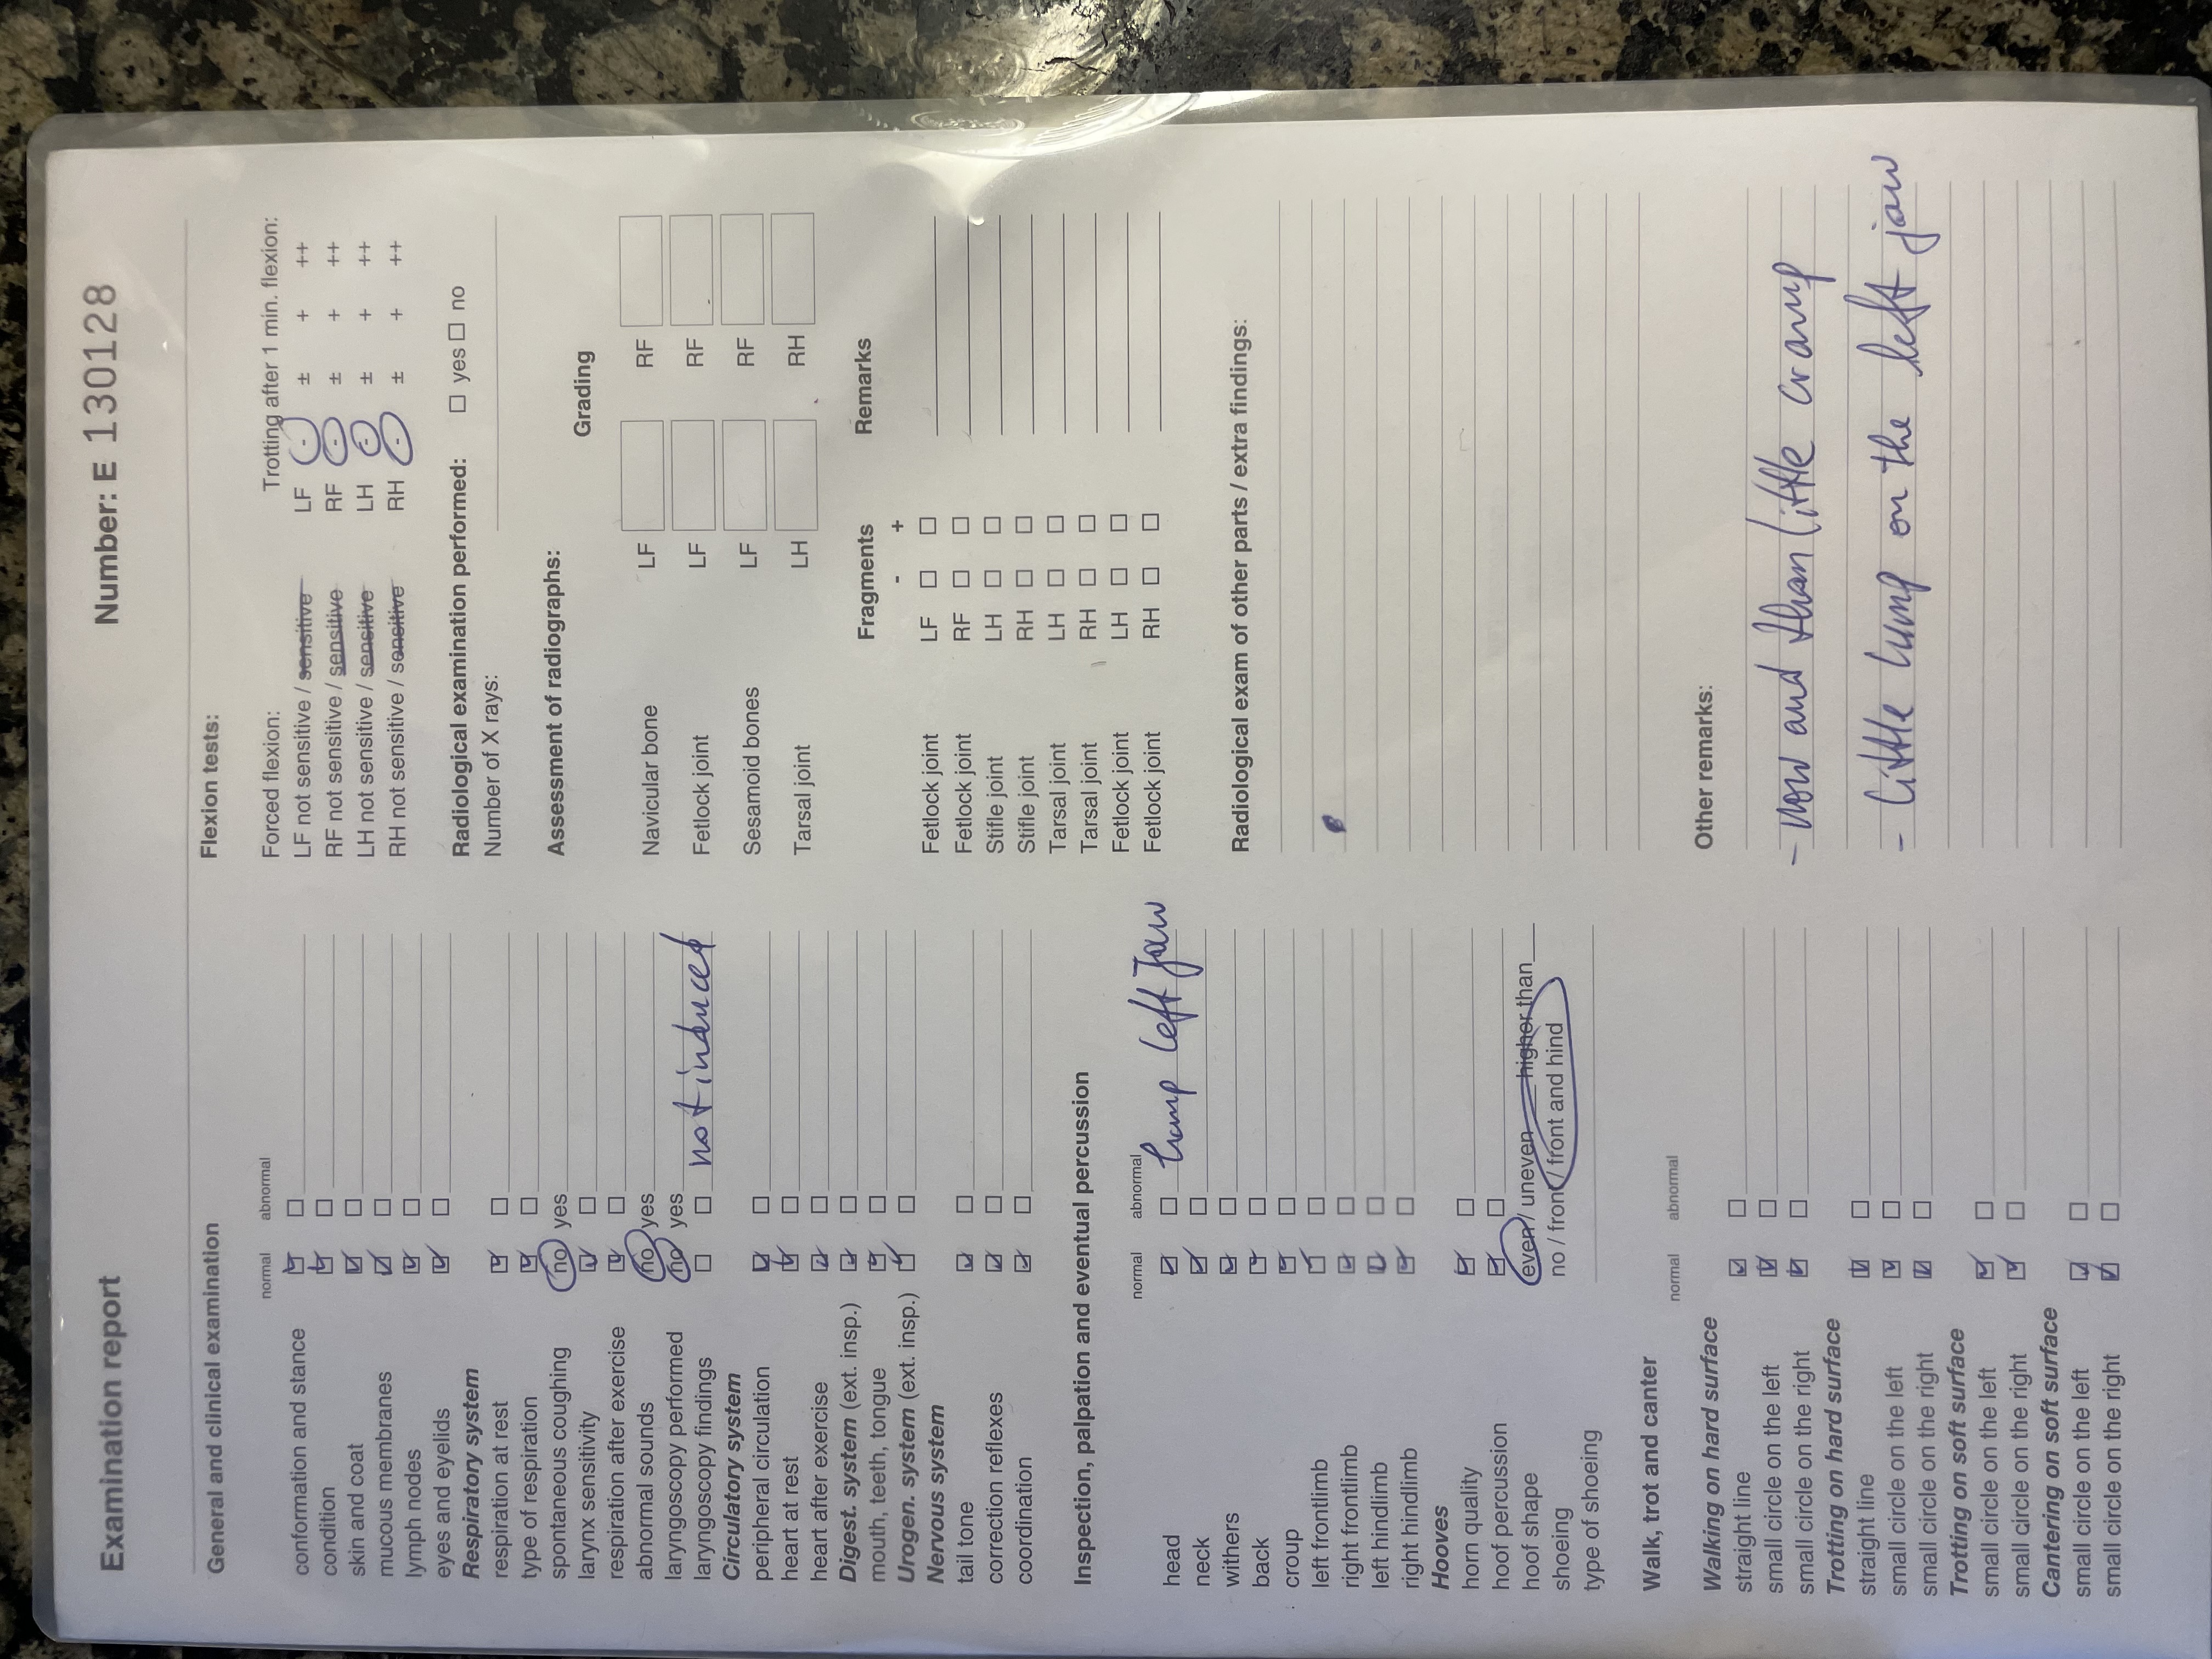 Examination report
Number: E 130128
General and clinical examination
normal abnormal
conformation and stance
condition
skin and coat
mucous membranes
lymph nodes
eyes and eyelids
Respiratory system
respiration at rest
type of respiration
spontaneous coughing no yes
larynx sensitivity
respiration after exercise
abnormal sounds no yes
laryngoscopy performed no yes
laryngoscopy findings not induced
Circulatory system
peripheral circulation
heart at rest
heart after exercise
Digest. system (ext. insp.)
mouth, teeth, tongue
Urogen. system (ext. insp.)
Nervous system
tail tone
correction reflexes
coordination
Inspection, palpation and eventual percussion
normal abnormal
head lump left Jaw
neck
withers
back
croup
left frontlimb
right frontlimb
left hindlimb
right hindlimb
Hooves
horn quality
hoof percussion
hoof shape even / uneven higher than
shoeing no / front / front and hind
type of shoeing
Walk, trot and canter
normal abnormal
Walking on hard surface
straight line
small circle on the left
small circle on the right
Trotting on hard surface
straight line
small circle on the left
small circle on the right
Trotting on soft surface
small circle on the left
small circle on the right
Cantering on soft surface
small circle on the left
small circle on the right
Flexion tests:
Forced flexion: Trotting after 1 min. flexion:
LF not sensitive / sensitive LF - ± + ++
RF not sensitive / sensitive RF - ± + ++
LH not sensitive / sensitive LH - ± + ++
RH not sensitive / sensitive RH - ± + ++
Radiological examination performed: yes no
Number of X rays:
Assessment of radiographs: Grading
Navicular bone LF RF
Fetlock joint LF RF
Sesamoid bones LF RF
Tarsal joint LH RH
Fragments Remarks
- +
Fetlock joint LF
Fetlock joint RF
Stifle joint LH
Stifle joint RH
Tarsal joint LH
Tarsal joint RH
Fetlock joint LH
Fetlock joint RH
Radiological exam of other parts / extra findings:
Other remarks:
- now and than little cramp
- little lump on the left jaw